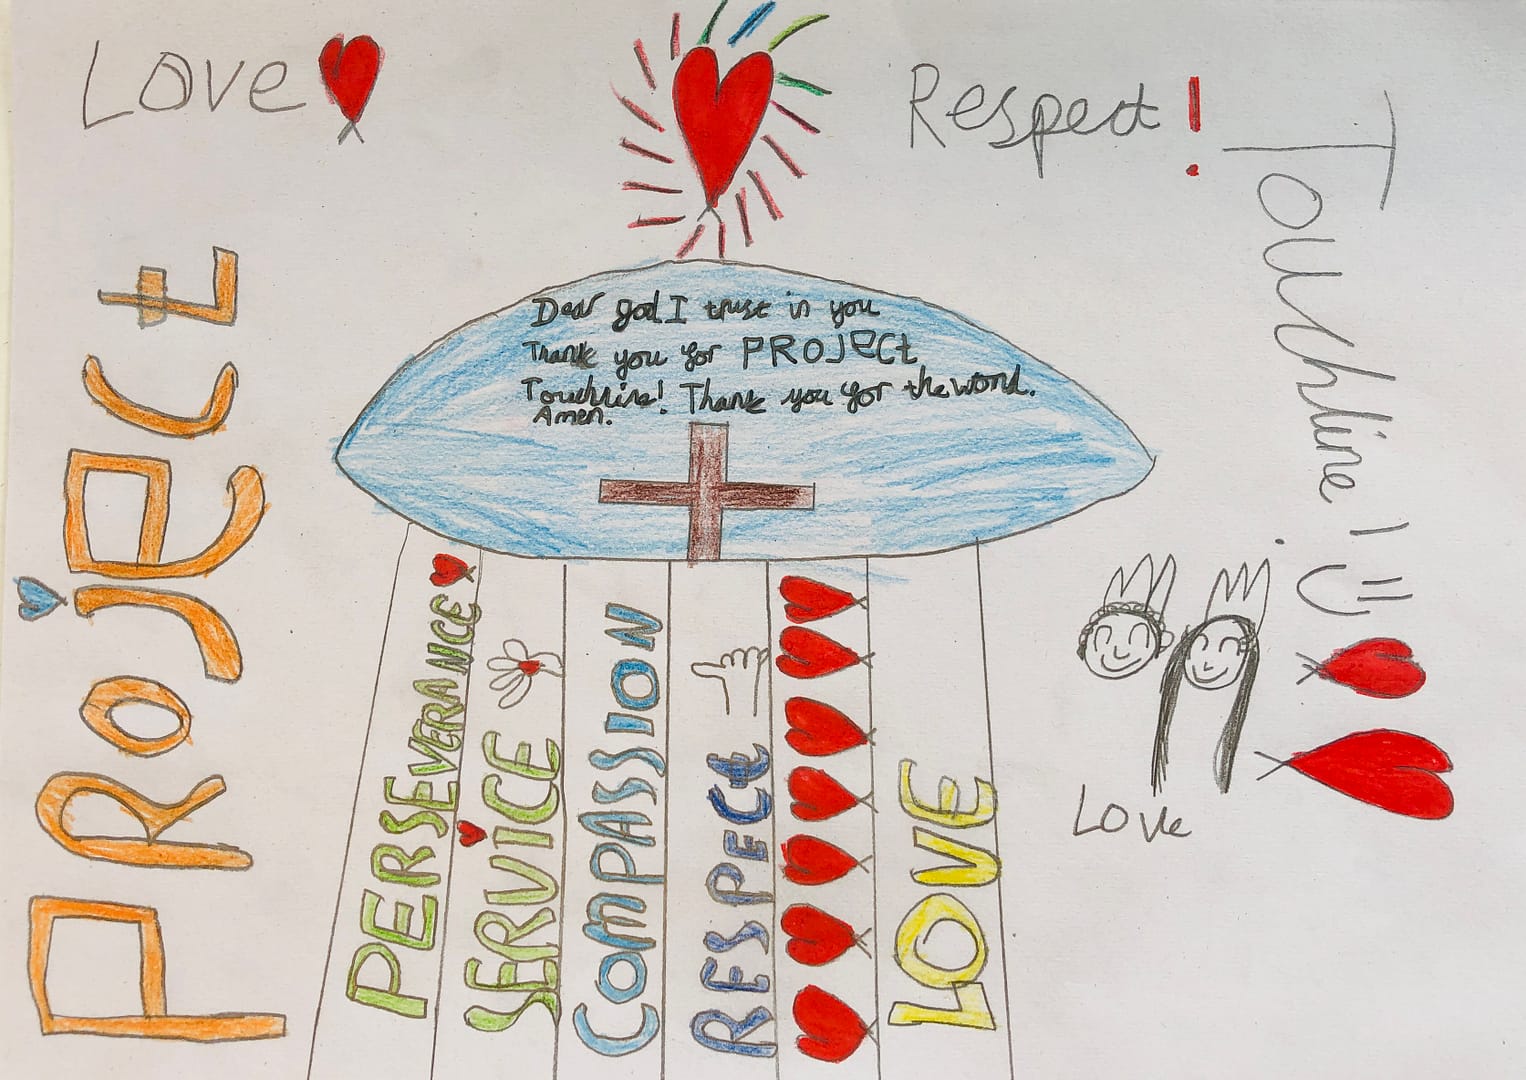 Love
Respect!
Touchline!
PROJECt
Dear god I trust in you
Thank you for PROJECt
Touchline! Thank you for the world.
Amen.
PERSEVERANCE
SERVICE
COMPASSION
RESPECt
LOVE
Love